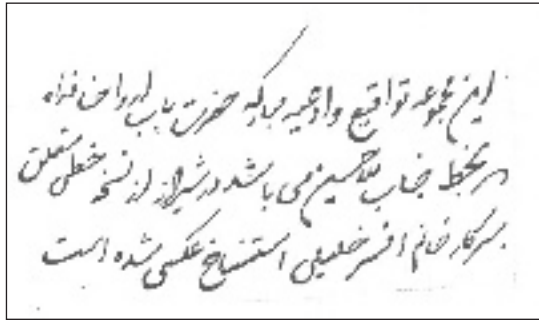 این مجموعه تواقیع و ادعیه مبارکه حضرت باب ارواحنا فداه
بخط جناب ملا حسین می باشد در شیراز از نسخه خطی متعلق
بسرکار خانم افسر خلیلی استنساخ عکسی شده است